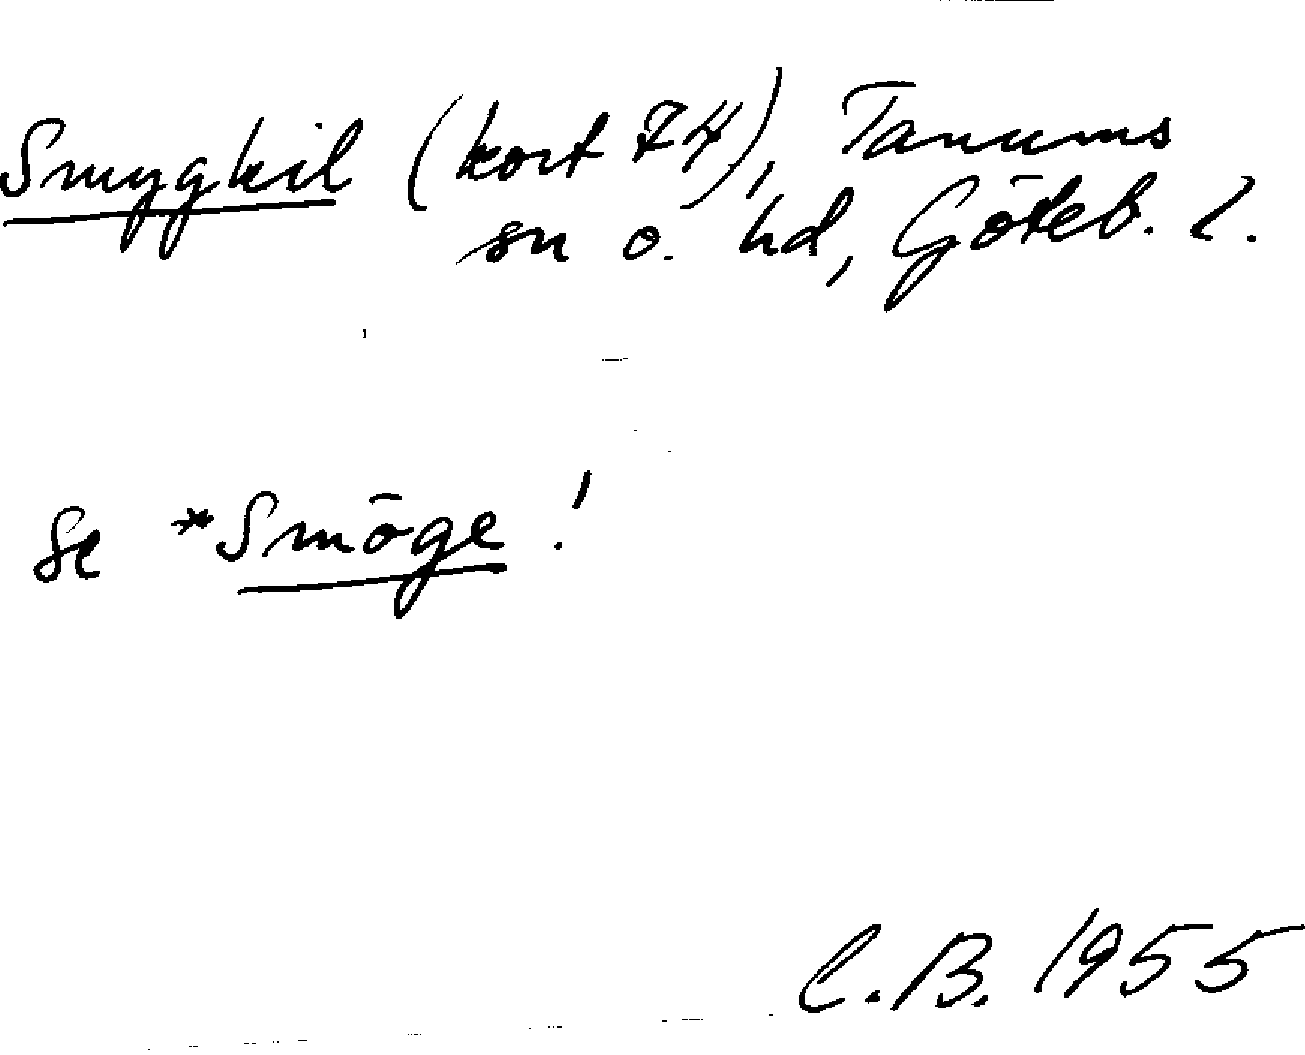 Smygkil (kort 74), Tanums
sn o. hd, Göteb. l.
Se *Smöge!
C.B. 1955